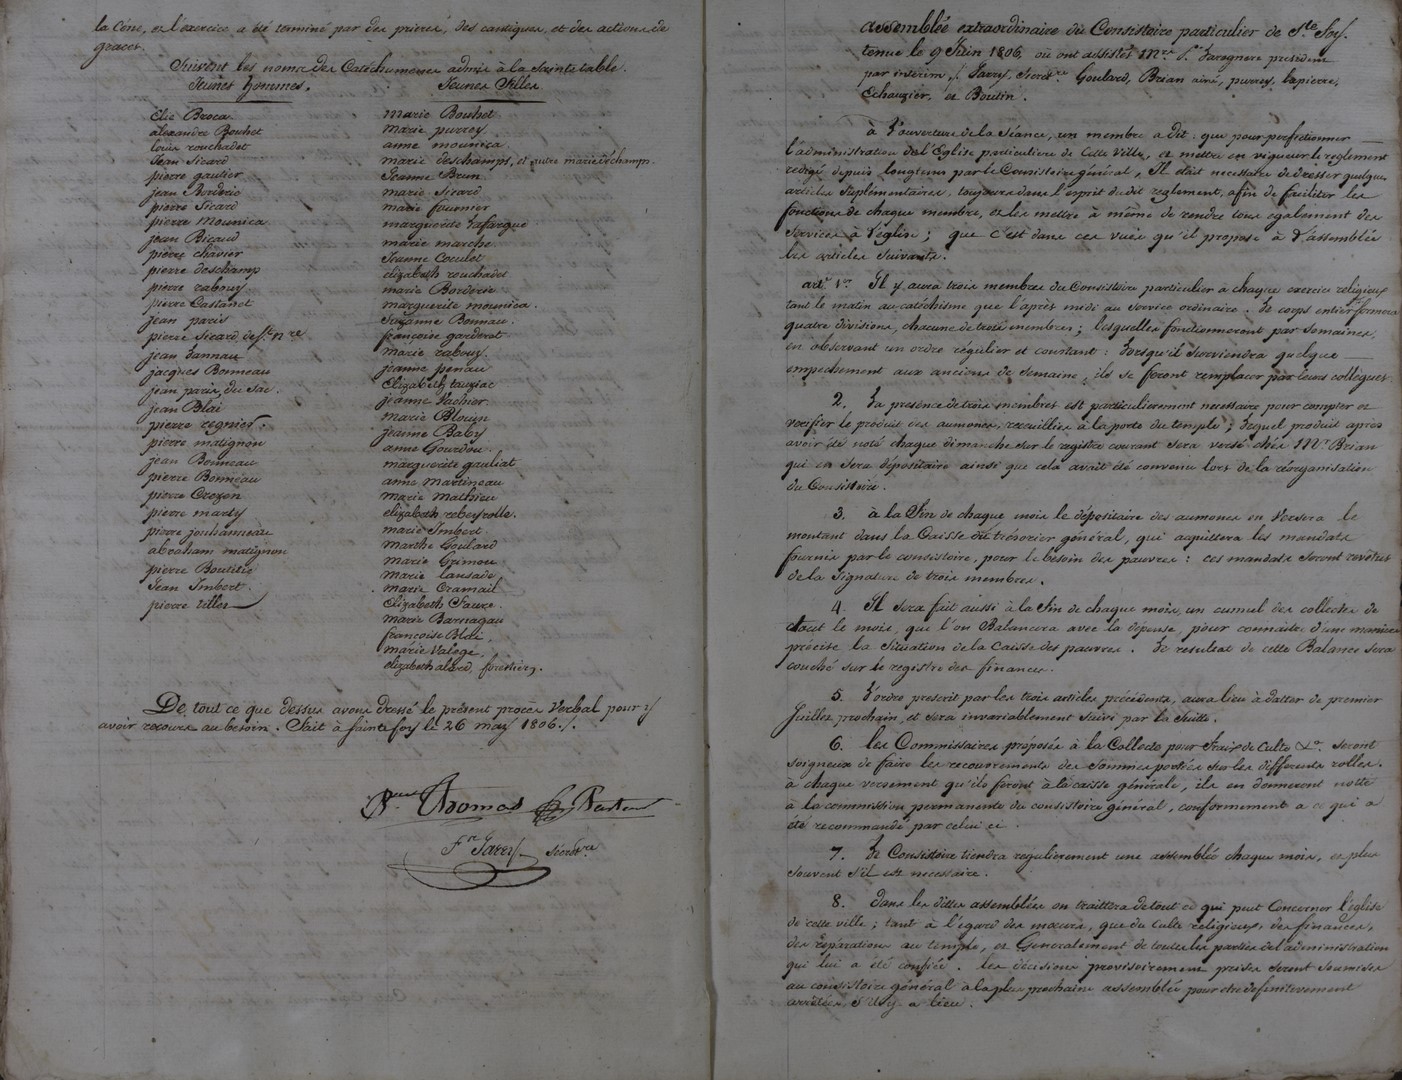 la Cène, et l'exercice a été terminé par des prieres, des cantiques, et des actions de
graces.
Suivent les noms des Catéchumenes admis à la Sainte table.
Jeunes hommes.
Elie Broca
alexandre Bouhet
louis rouchadet
Jean Sicard
pierre gautier
jean Borderie
pierre Sicard
pierre Mounica
jean Bicaud
pierre chavier
pierre deschamp
pierre rabouy
pierre Castanet
jean paris
pierre Sicard de st. nre
jean Lannau
jacques Bonneau
jean paris, du Sac.
jean Blai
pierre regnier.
pierre matignon
jean Bonneau
pierre Bonneau
pierre Crozen
pierre marty
pierre jouhanneau
abraham matignon
pierre Boutiere
Jean Imbert
pierre villes
Jeunes filles
marie Bouhet
marie purrey
anne mounica
marie deschamps, et autre marie deschamp.
Jeanne Brun
marie Sicard
marie fournier
marguerite Lafargue
marie marche
Jeanne Coculet
elizabeth rouchadet
marie Borderie
marguerite mounica.
Suzanne Bonnau.
françoise garderat
marie rabouy.
jeanne penau
Elizabeth tauziac
jeanne Vachier
marie Blouin
jeanne Baby
anne Gourdou
marguerite gauliat
anne martineau
marie Mathieu
elizabeth rebeyrolle.
marie Imbert
Marthe Goulard
Marie Grimou
Marie lansade
marie Cramail
Elizabeth Faure.
marie Barnagau
françoise Blai,
marie Valege,
elizabeth alard, forestier,
De tout ce que dessus avons dressé le présent procès Verbal pour y
avoir recours au besoin. Fait à sainte foy le 26 may 1806./.
Pre. Thomas Pasteur
Fn. Jarry secrétre
assemblée extraordinaire du Consistoire particulier de Ste. foy.
tenue le 9 Juin 1806, où ont assistés Mrs. Laragnere président
par interim, Jarry, Secretre Goulard, Brian ainé, purrey, lapierre,
Echauzier, et Boutin.
à l'ouverture de la Séance, un membre a dit: que pour perfectionner
l'administration de l'Eglise particuliere de Cette Ville, et mettre en vigueur le reglement
redigé depuis longtems par le Consistoire général, Il était necessaire de dresser quelques
articles Suplémentaires, toujours dans l'esprit du dit reglement, afin de faciliter les
fonctions de chaque membre, et les mettre à même de rendre tous egalement des
services à l'église; que c'est dans ces vues qu'il propose à l'assemblée
les articles Suivants.
art. 1er. Il y aura trois membres du Consistoire particulier à chaque exercice religieux
tant le matin au catéchisme que l'après midi au Service ordinaire. Le corps entier formera
quatre divisions, chacune de trois membres; lesquelles fonctionneront par Semaines,
en observant un ordre régulier et constant: Lorsqu'il Surviendra quelque
empechement aux anciens de Semaine, ils se feront remplacer par leurs collègues.
2. La presence de trois membres est particulierement necessaire pour compter et
verifier le produit des aumones, recueillies à la porte du temple; Lequel produit apres
avoir été noté chaque dimanche sur le registre courant sera versé chés Mr. Brian
qui en sera dépositaire ainsi que cela avait été convenu lors de la réorganisation
du Consistoire.
3. à la fin de chaque mois le dépositaire des aumones en Versera le
montant dans la Caisse du trésorier général, qui aquittera les mandats
fournis par le consistoire, pour le besoin des pauvres: ces mandats seront revêtus
de la Signature de trois membres.
4. Il sera fait aussi à la fin de chaque mois, un cumul des collectes de
tout le mois, que l'on Balancera avec la dépense, pour connaitre d'une maniere
précise la Situation de la Caisse des pauvres. Le resultat de cette Balance sera
couché sur le registre des finances.
5. L'ordre prescrit par les trois articles précédents, aura lieu à datter de premier
Juillet prochain, et sera invariablement suivi par la Suitte.
6. les Commissaires préposés à la Collecte pour frais de Culte &c. seront
soigneux de faire les recouvrements des Sommes portées sur les differents rolles.
à chaque versement qu'ils feront à la caisse générale, ils en donneront notte
à la commission permanente du consistoire général, conformement a ce qui a
été recommandé par celui ci.
7. Le Consistoire tiendra regulierement une assemblée chaque mois, et plus
souvent s'il est necessaire.
8. dans les dittes assemblées on traittera de tout ce qui peut Concerner l'église
de cette ville; tant à l'égard des mœurs, que du Culte réligieux, des finances,
des réparations au temple, et Generalement de toutes les parties de l'administration
qui lui a été confiée. les décisions provisoirement prises seront soumises
au consistoire général à la plus prochaine assemblée pour etre definitivement
arrêtées, s'il y a lieu.